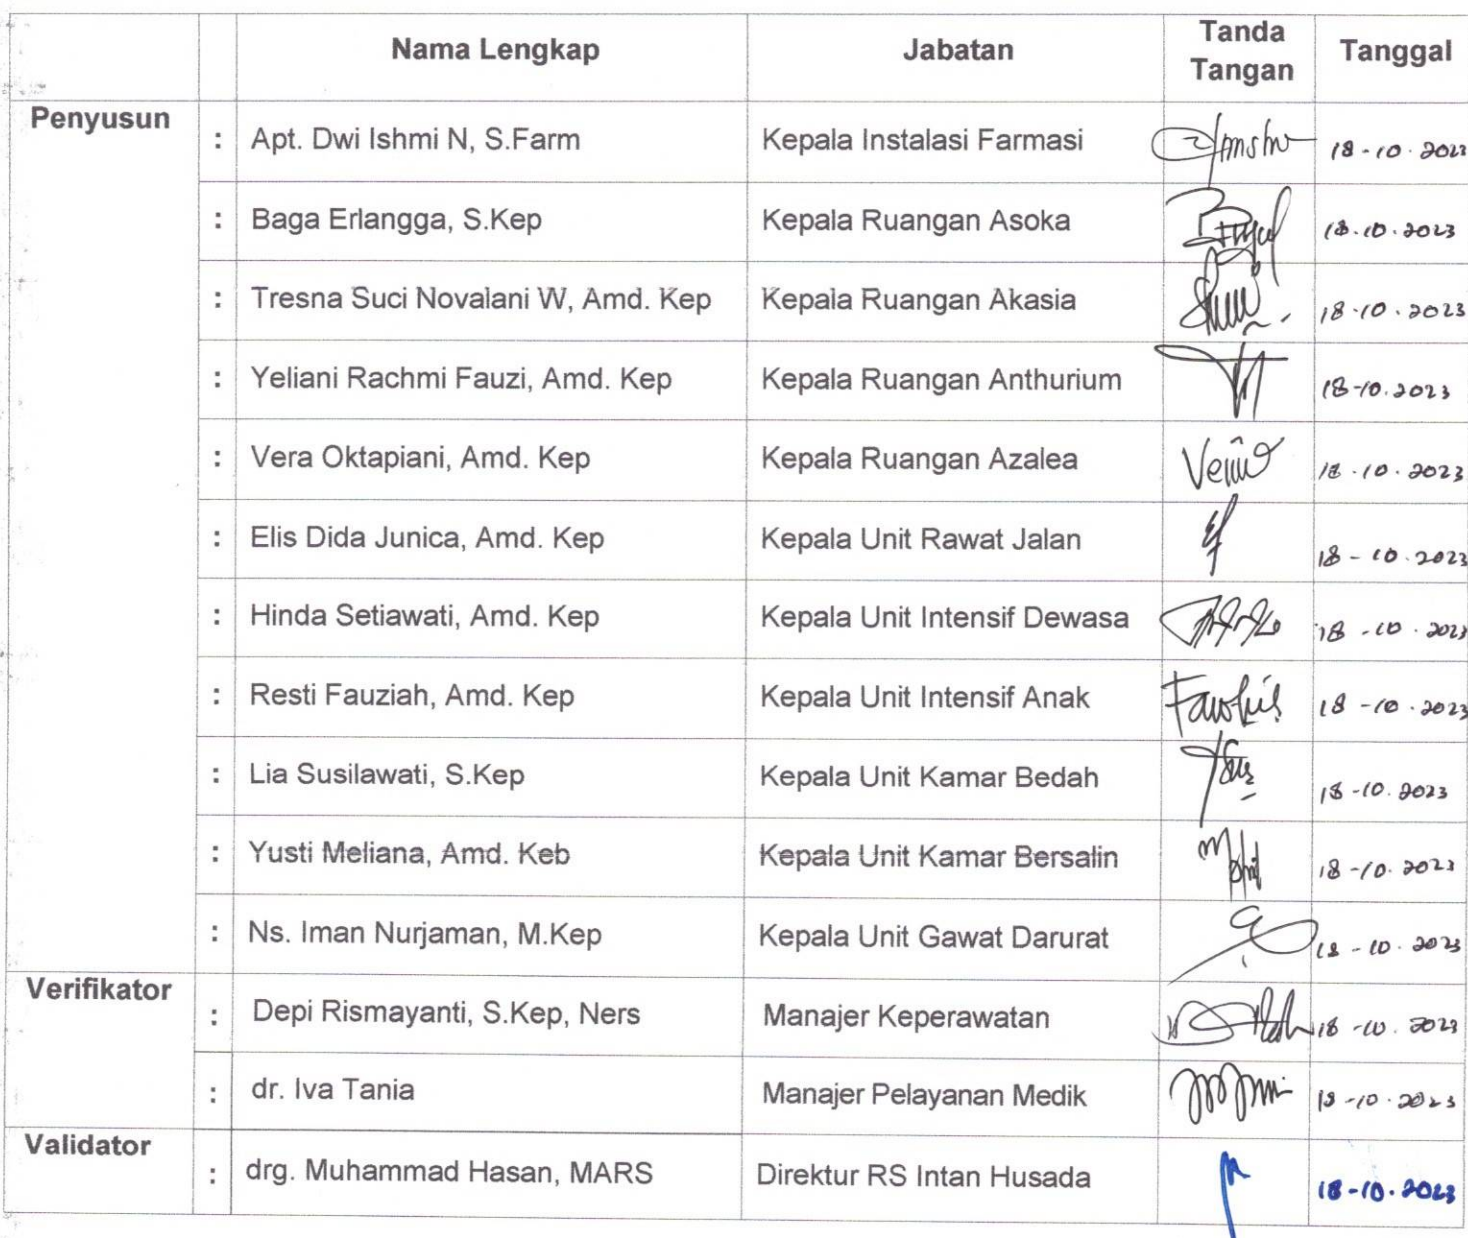 Nama Lengkap Jabatan Tanda Tangan Tanggal
Penyusun : Apt. Dwi Ishmi N, S.Farm Kepala Instalasi Farmasi 18-10-2023
: Baga Erlangga, S.Kep Kepala Ruangan Asoka 18.10.2023
: Tresna Suci Novalani W, Amd. Kep Kepala Ruangan Akasia 18-10.2023
: Yeliani Rachmi Fauzi, Amd. Kep Kepala Ruangan Anthurium 18-10.2023
: Vera Oktapiani, Amd. Kep Kepala Ruangan Azalea 18-10.2023
: Elis Dida Junica, Amd. Kep Kepala Unit Rawat Jalan 18-10.2023
: Hinda Setiawati, Amd. Kep Kepala Unit Intensif Dewasa 18-10.2023
: Resti Fauziah, Amd. Kep Kepala Unit Intensif Anak 18-10.2023
: Lia Susilawati, S.Kep Kepala Unit Kamar Bedah 18-10.2023
: Yusti Meliana, Amd. Keb Kepala Unit Kamar Bersalin 18-10.2023
: Ns. Iman Nurjaman, M.Kep Kepala Unit Gawat Darurat 18-10.2023
Verifikator : Depi Rismayanti, S.Kep, Ners Manajer Keperawatan 18-10.2023
: dr. Iva Tania Manajer Pelayanan Medik 18-10.2023
Validator : drg. Muhammad Hasan, MARS Direktur RS Intan Husada 18-10.2023